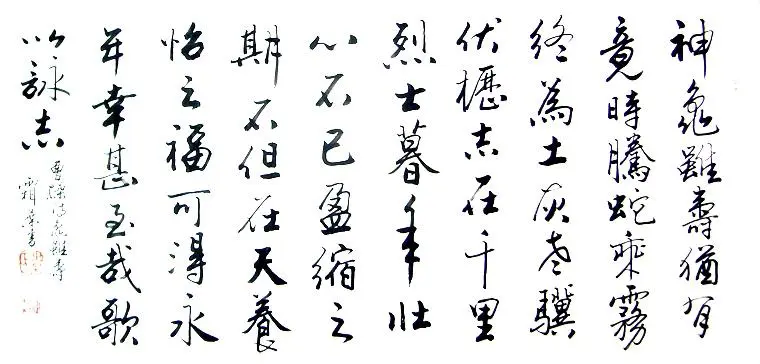 神龜雖壽猶有
竟時騰蛇乘霧
終為土灰老驥
伏櫪志在千里
烈士暮年壯
心不已盈縮之
期不但在天養
怡之福可得永
年幸甚至哉歌
以詠志
曹操詩龜雖壽
霜書